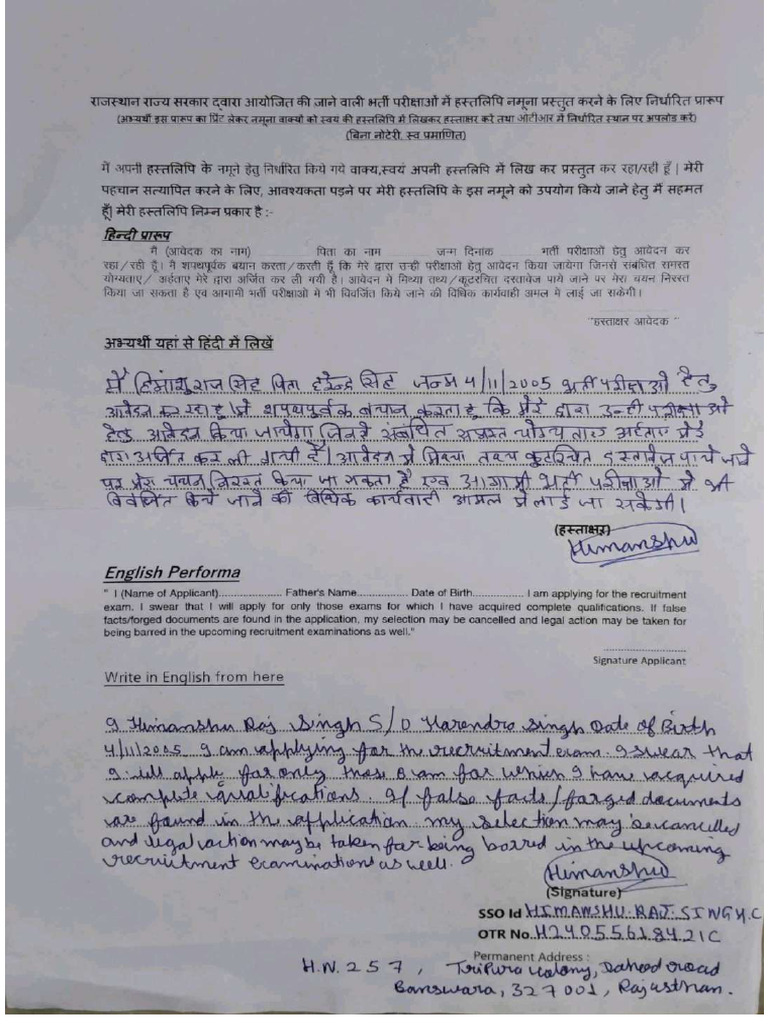 राजस्थान राज्य सरकार द्वारा आयोजित की जाने वाली भर्ती परीक्षाओं में हस्तलिपि नमूना प्रस्तुत करने के लिए निर्धारित प्रारूप
(अभ्यर्थी इस प्रारूप का प्रिंट लेकर नमूना वाक्यों को स्वयं की हस्तलिपि में लिखकर हस्ताक्षर करें तथा ओटीआर में निर्धारित स्थान पर अपलोड करें)
(बिना नोटेरी, स्व प्रमाणित)
में अपनी हस्तलिपि के नमूने हेतु निर्धारित किये गये वाक्य,स्वयं अपनी हस्तलिपि में लिख कर प्रस्तुत कर रहा/रही हूँ | मेरी
पहचान सत्यापित करने के लिए, आवश्यकता पड़ने पर मेरी हस्तलिपि के इस नमूने को उपयोग किये जाने हेतु मैं सहमत
हूँ| मेरी हस्तलिपि निम्न प्रकार है :-
हिन्दी प्रारूप
मैं (आवेदक का नाम) ................ पिता का नाम ............ जन्म दिनांक .......... भर्ती परीक्षाओं हेतु आवेदन कर
रहा/रही हूँ। मैं शपथपूर्वक बयान करता/करती हूँ कि मेरे द्वारा उन्हीं परीक्षाओं हेतु आवेदन किया जायेगा जिनसे संबंधित समस्त
योग्यताएं/ अर्हताएं मेरे द्वारा अर्जित कर ली गयी है। आवेदन में मिथ्या तथ्य/कूटरचित दस्तावेज पाये जाने पर मेरा चयन निरस्त
किया जा सकता है एवं आगामी भर्ती परीक्षाओं में भी विवर्जित किये जाने की विधिक कार्यवाही अमल में लाई जा सकेगी।
हस्ताक्षर आवेदक "
अभ्यर्थी यहां से हिंदी में लिखें
मैं हिमांशु राज सिंह पिता हरेन्द्र सिंह जन्म 4/11/2005 भर्ती परीक्षाओ हेतु
आवेदन कर रहा हू। मैं शपथपूर्वक बयान करता हू कि मेरे द्वारा उन्ही परीक्षाओ
हेतु आवेदन किया जायेगा जिनसे संबंधित समस्त योग्यताए अर्हताए मेरे
द्वारा अर्जित कर ली गयी है। आवेदन मे मिथ्या तथ्य कुटरचित दस्तावेज पाये जाने
पर मेरा चयन निरस्त किया जा सकता है एवं आगामी भर्ती परीक्षाओ मे भी
विवर्जित किये जाने की विधिक कार्यवाही अमल मे लाई जा सकेगी।
(हस्ताक्षर)
Himanshu
English Performa
" I (Name of Applicant)..................... Father's Name................. Date of Birth................. I am applying for the recruitment
exam. I swear that I will apply for only those exams for which I have acquired complete qualifications. If false
facts/forged documents are found in the application, my selection may be cancelled and legal action may be taken for
being barred in the upcoming recruitment examinations as well."
Signature Applicant
Write in English from here
I Himanshu Raj Singh S/O Harendra Singh Date of Birth
4/11/2005 I am applying for the recruitment exam. I swear that
I will apply for only those exam for which I have acquired
complete qualifications. If false facts/forged documents
are found in the application my selection may be cancelled
and legal action may be taken for being barred in the upcoming
recruitment examinations as well.
Himanshu
(Signature)
SSO Id HIMANSHU.RAJ.SINGH.C
OTR No. H24055618421C
Permanent Address :
H.N. 257, Tripura colony, Dahod road
Banswara, 327001, Rajasthan.